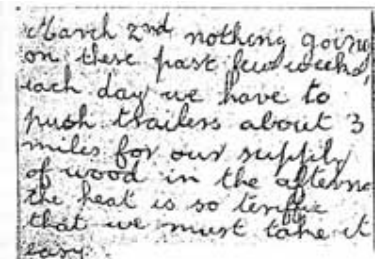 March 2nd nothing going
on these past few weeks,
each day we have to
push trailers about 3
miles for our supply
of wood in the afterno
the heat is so terrific
that we must take it
easy.